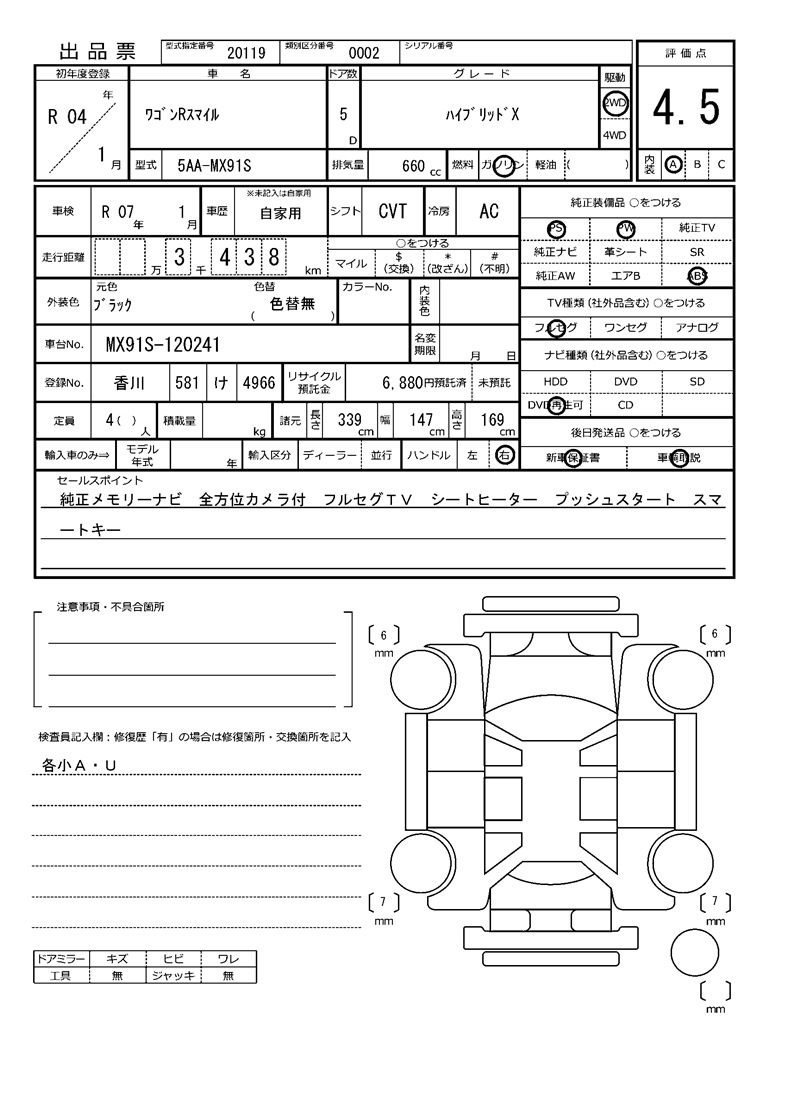 出品票 型式指定番号 20119 類別区分番号 0002 シリアル番号
評価点
4.5
内装 A B C
初年度登録 車名 ドア数 グレード 駆動
R 04 年 1 月 ﾜｺﾞﾝRｽﾏｲﾙ 5 D ﾊｲﾌﾞﾘｯﾄﾞX 2WD
4WD
型式 5AA-MX91S 排気量 660 cc 燃料 ガソリン 軽油 ( )
車検 R 07 年 1 月 車歴 ※未記入は自家用 自家用 シフト CVT 冷房 AC
走行距離 万 3 千 4 3 8 km ○をつける
マイル $ (交換) * (改ざん) # (不明)
外装色 元色 ﾌﾞﾗｯｸ 色替 色替無 ( ) カラーNo. 内装色
車台No. MX91S-120241 名変期限 月 日
登録No. 香川 581 け 4966 リサイクル預託金 6,880円預託済 未預託
定員 4 ( ) 人 積載量 kg 諸元 長さ 339 cm 幅 147 cm 高さ 169 cm
輸入車のみ⇒ モデル年式 年 輸入区分 ディーラー 並行 ハンドル 左 右
純正装備品 ○をつける
PS PW 純正TV
純正ナビ 革シート SR
純正AW エアB ABS
TV種類(社外品含む) ○をつける
フルセグ ワンセグ アナログ
ナビ種類(社外品含む) ○をつける
HDD DVD SD
DVD再生可 CD
後日発送品 ○をつける
新車保証書 車輌取説
セールスポイント
純正メモリーナビ 全方位カメラ付 フルセグＴＶ シートヒーター プッシュスタート スマ
ートキー
注意事項・不具合箇所
検査員記入欄：修復歴「有」の場合は修復箇所・交換箇所を記入
各小Ａ・Ｕ
ドアミラー キズ ヒビ ワレ
工具 無 ジャッキ 無
6 mm
6 mm
7 mm
7 mm
mm